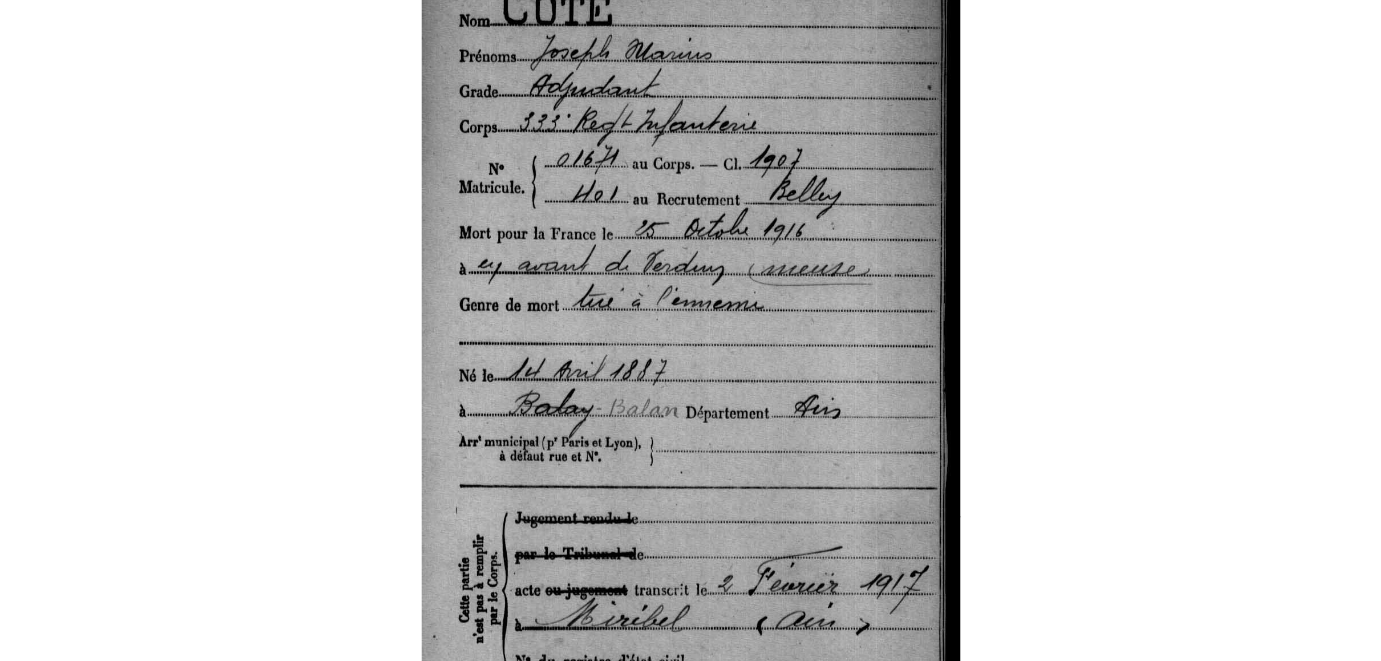 Nom COTE
Prénoms Joseph Marius
Grade Adjudant
Corps 333e Regt Infanterie
No Matricule. { 01671 au Corps. — Cl. 1907
401 au Recrutement Belley
Mort pour la France le 25 Octobre 1916
à en avant de Verdun (meuse)
Genre de mort tué à l'ennemi
Né le 14 Avril 1887
à Balan - Balan Département Ain
Arrt municipal (pr Paris et Lyon),
à défaut rue et No.
Cette partie
n'est pas à remplir
par le Corps.
Jugement rendu le
par le Tribunal de
acte ou jugement transcrit le 2 Février 1917
à Miribel (Ain)
No du registre d'état civil